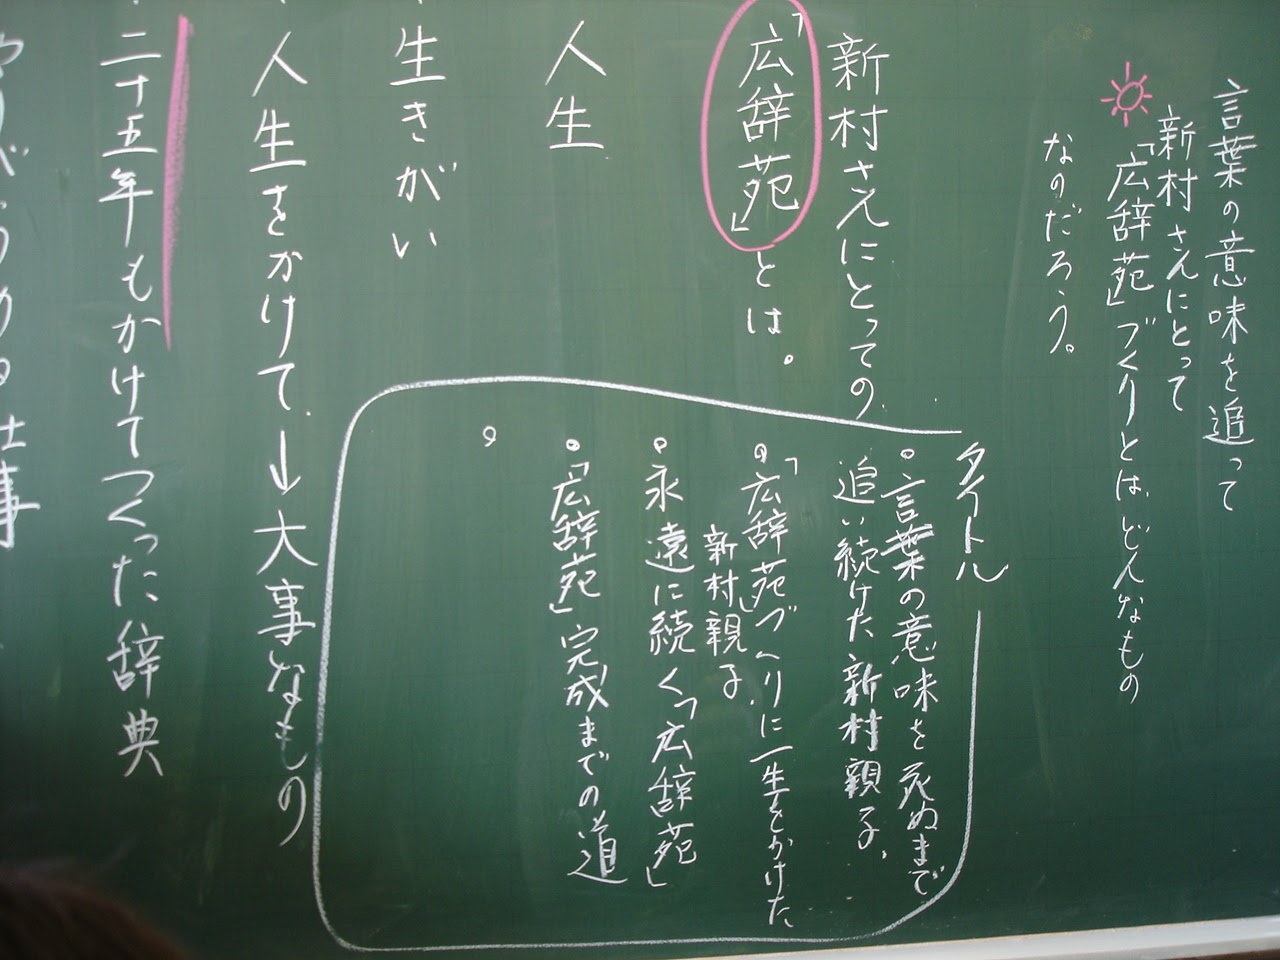 言葉の意味を追って
新村さんにとって
「広辞苑」づくりとは、どんなもの
なのだろう。
新村さんにとっての
「広辞苑」とは。
人生
生きがい
・人生をかけて、→大事なもの
・二十五年もかけてつくった辞典
タイトル
。言葉の意味を死ぬまで
追い続けた新村親子、
。「広辞苑」づくりに一生をかけた
新村親子
。永遠に続く「広辞苑」
。「広辞苑」完成までの道
。
仕事